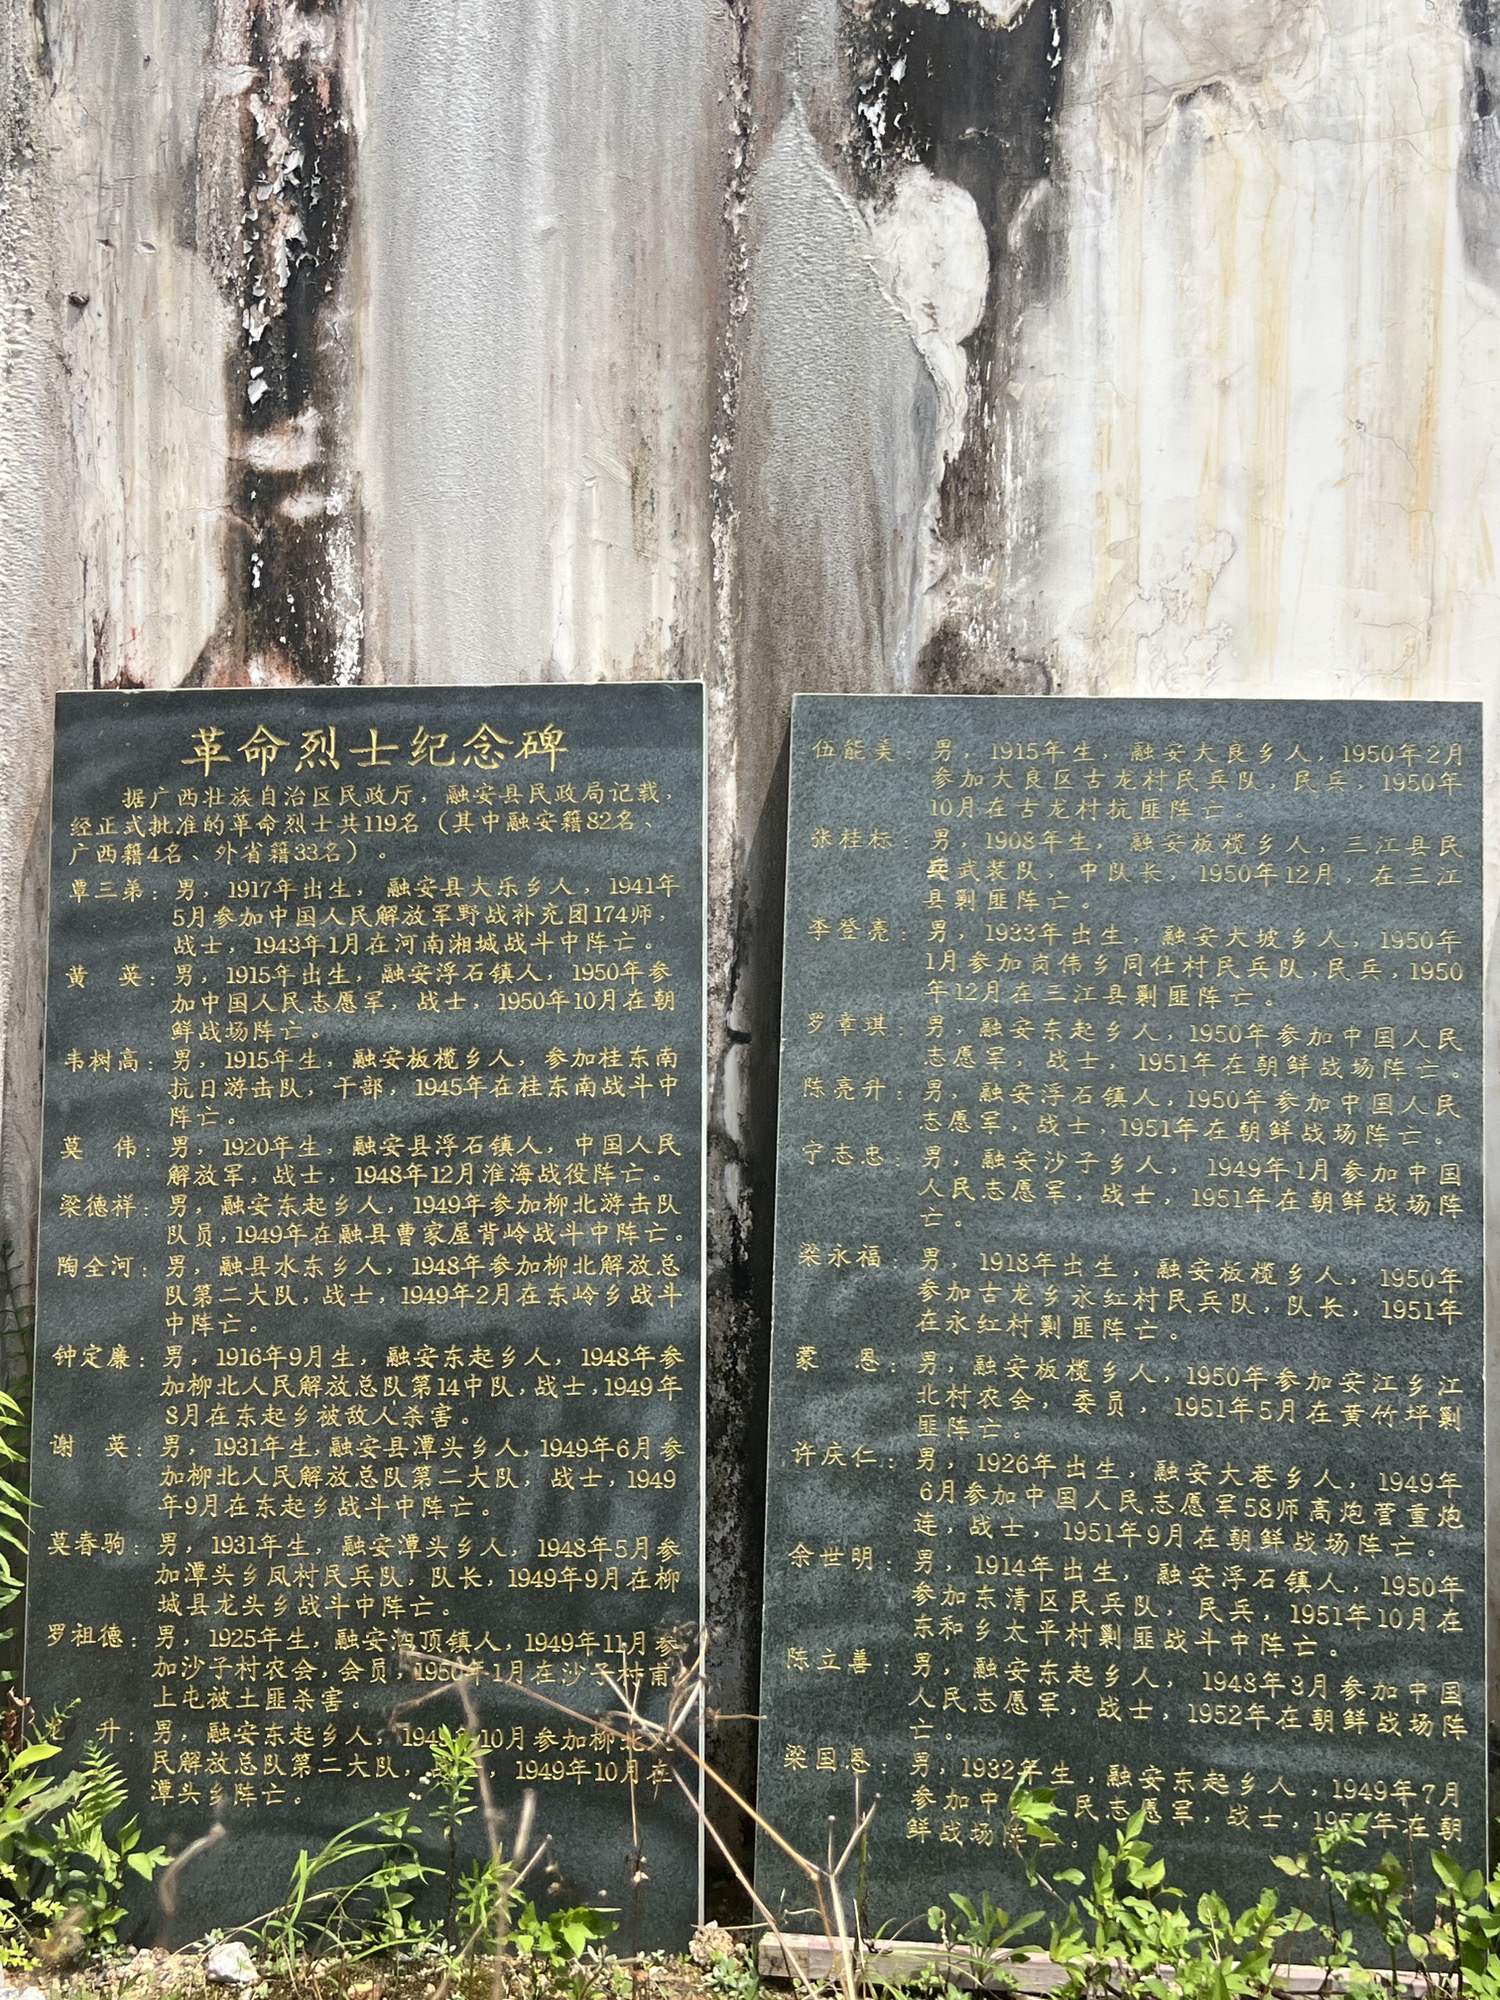 革命烈士纪念碑
据广西壮族自治区民政厅，融安县民政局记载，
经正式批准的革命烈士共119名（其中融安籍82名、
广西籍4名、外省籍33名）。
覃三弟：男，1917年出生，融安县大乐乡人，1941年
5月参加中国人民解放军野战补充团174师，
战士，1943年1月在河南湘城战斗中阵亡。
黄　英：男，1915年出生，融安浮石镇人，1950年参
加中国人民志愿军，战士，1950年10月在朝
鲜战场阵亡。
韦树高：男，1915年生，融安板榄乡人，参加桂东南
抗日游击队，干部，1945年在桂东南战斗中
阵亡。
莫　伟：男，1920年生，融安县浮石镇人，中国人民
解放军，战士，1948年12月淮海战役阵亡。
梁德祥：男，融安东起乡人，1949年参加柳北游击队
队员，1949年在融县曹家屋背岭战斗中阵亡。
陶全河：男，融县水东乡人，1948年参加柳北解放总
队第二大队，战士，1949年2月在东岭乡战斗
中阵亡。
钟定廉：男，1916年9月生，融安东起乡人，1948年参
加柳北人民解放总队第14中队，战士，1949年
8月在东起乡被敌人杀害。
谢　英：男，1931年生，融安县潭头乡人，1949年6月参
加柳北人民解放总队第二大队，战士，1949
年9月在东起乡战斗中阵亡。
莫春驹：男，1931年生，融安潭头乡人，1948年5月参
加潭头乡凤村民兵队，队长，1949年9月在柳
城县龙头乡战斗中阵亡。
罗祖德：男，1925年生，融安泗顶镇人，1949年11月参
加沙子村农会，会员，1950年1月在沙子村甫
上屯被土匪杀害。
升：男，融安东起乡人，1949年10月参加柳北人
民解放总队第二大队，战士，1949年10月在
潭头乡阵亡。
伍能美　男，1915年生，融安大良乡人，1950年2月
参加大良区古龙村民兵队，民兵，1950年
10月在古龙村抗匪阵亡。
张桂标：男，1908年生，融安板榄乡人，三江县民
兵武装队，中队长，1950年12月，在三江
县剿匪阵亡。
李登亮：男，1933年出生，融安大坡乡人，1950年
1月参加岗伟乡同仕村民兵队，民兵，1950
年12月在三江县剿匪阵亡。
罗章琪：男，融安东起乡人，1950年参加中国人民
志愿军，战士，1951年在朝鲜战场阵亡。
陈亮升：男，融安浮石镇人，1950年参加中国人民
志愿军，战士，1951年在朝鲜战场阵亡。
宁志忠：男，融安沙子乡人，1949年1月参加中国
人民志愿军，战士，1951年在朝鲜战场阵
亡。
梁永福：男，1918年出生，融安板榄乡人，1950年
参加古龙乡永红村民兵队，队长，1951年
在永红村剿匪阵亡。
蒙　恩：男，融安板榄乡人，1950年参加安江乡江
北村农会，委员，1951年5月在黄竹坪剿
匪阵亡。
许庆仁：男，1926年出生，融安大巷乡人，1949年
6月参加中国人民志愿军58师高炮营重炮
连，战士，1951年9月在朝鲜战场阵亡。
余世明：男，1914年出生，融安浮石镇人，1950年
参加东清区民兵队，民兵，1951年10月在
东和乡太平村剿匪战斗中阵亡。
陈立善：男，融安东起乡人，1948年3月参加中国
人民志愿军，战士，1952年在朝鲜战场阵
亡。
梁国恩：男，1932年生，融安东起乡人，1949年7月
参加中 民志愿军，战士，年在朝
鲜战场阵